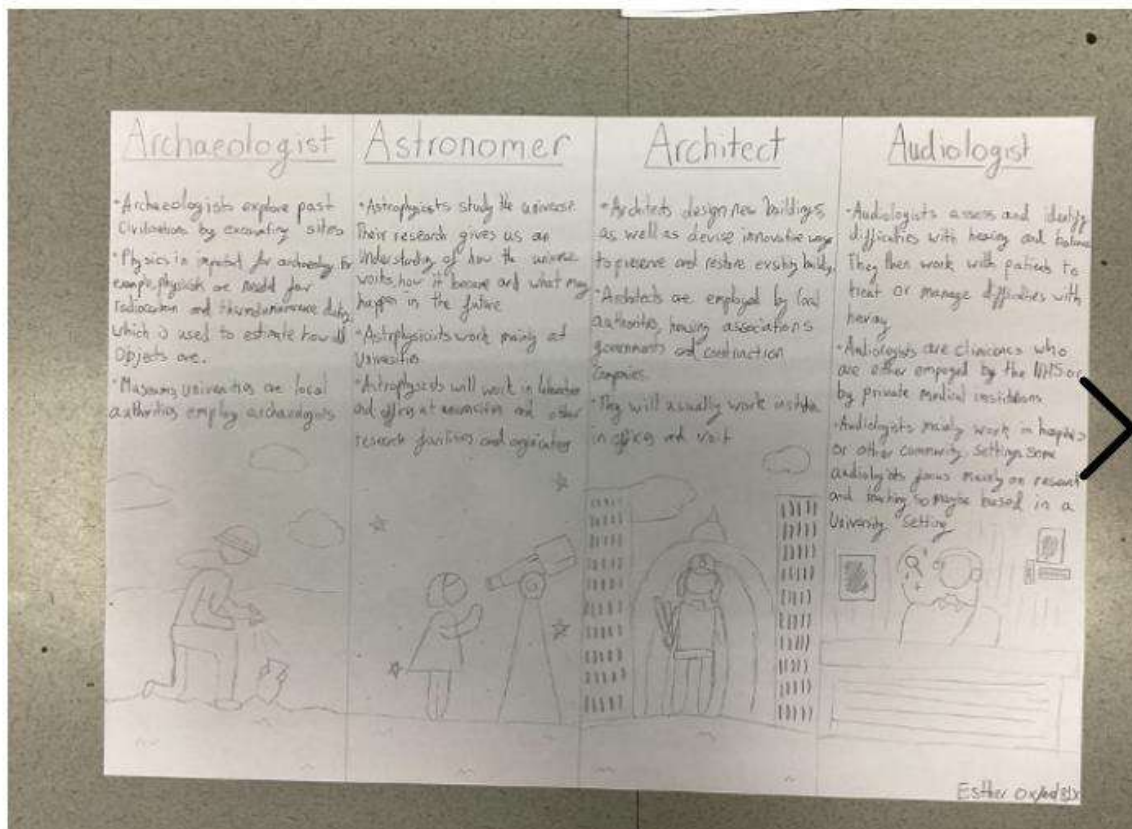 Archaeologist
• Archaeologists explore past
Civilisations by excavating sites
• Physics is important for archaeology. For
example, physicists are needed for
radiocarbon and thermoluminescence dating,
which is used to estimate how old
Objects are.
• Museums universities are local
authorities employ archaeologists
Astronomer
• Astrophysicists study the universe.
Their research gives us an
Understanding of how the universe
works, how it became and what may
happen in the future
• Astrophysicists work mainly at
Universities
• Astrophysicists will work in
and offices at and other
research facilities and
Architect
• Architects design new buildings
as well as devise innovative ways
to preserve and restore existing
• Architects are employed by local
authorities, housing associations
governments and construction
Companies.
• They will usually work
in offices and visit
Audiologist
• Audiologists assess and identify
difficulties with hearing and balance
They then work with patients to
treat or manage difficulties with
• Audiologists are who
are either by the NHS or
by private medical
• Audiologists mainly work in
or other community settings some
audiologists focus mainly on research
and teaching so maybe based in a
University setting
Esther